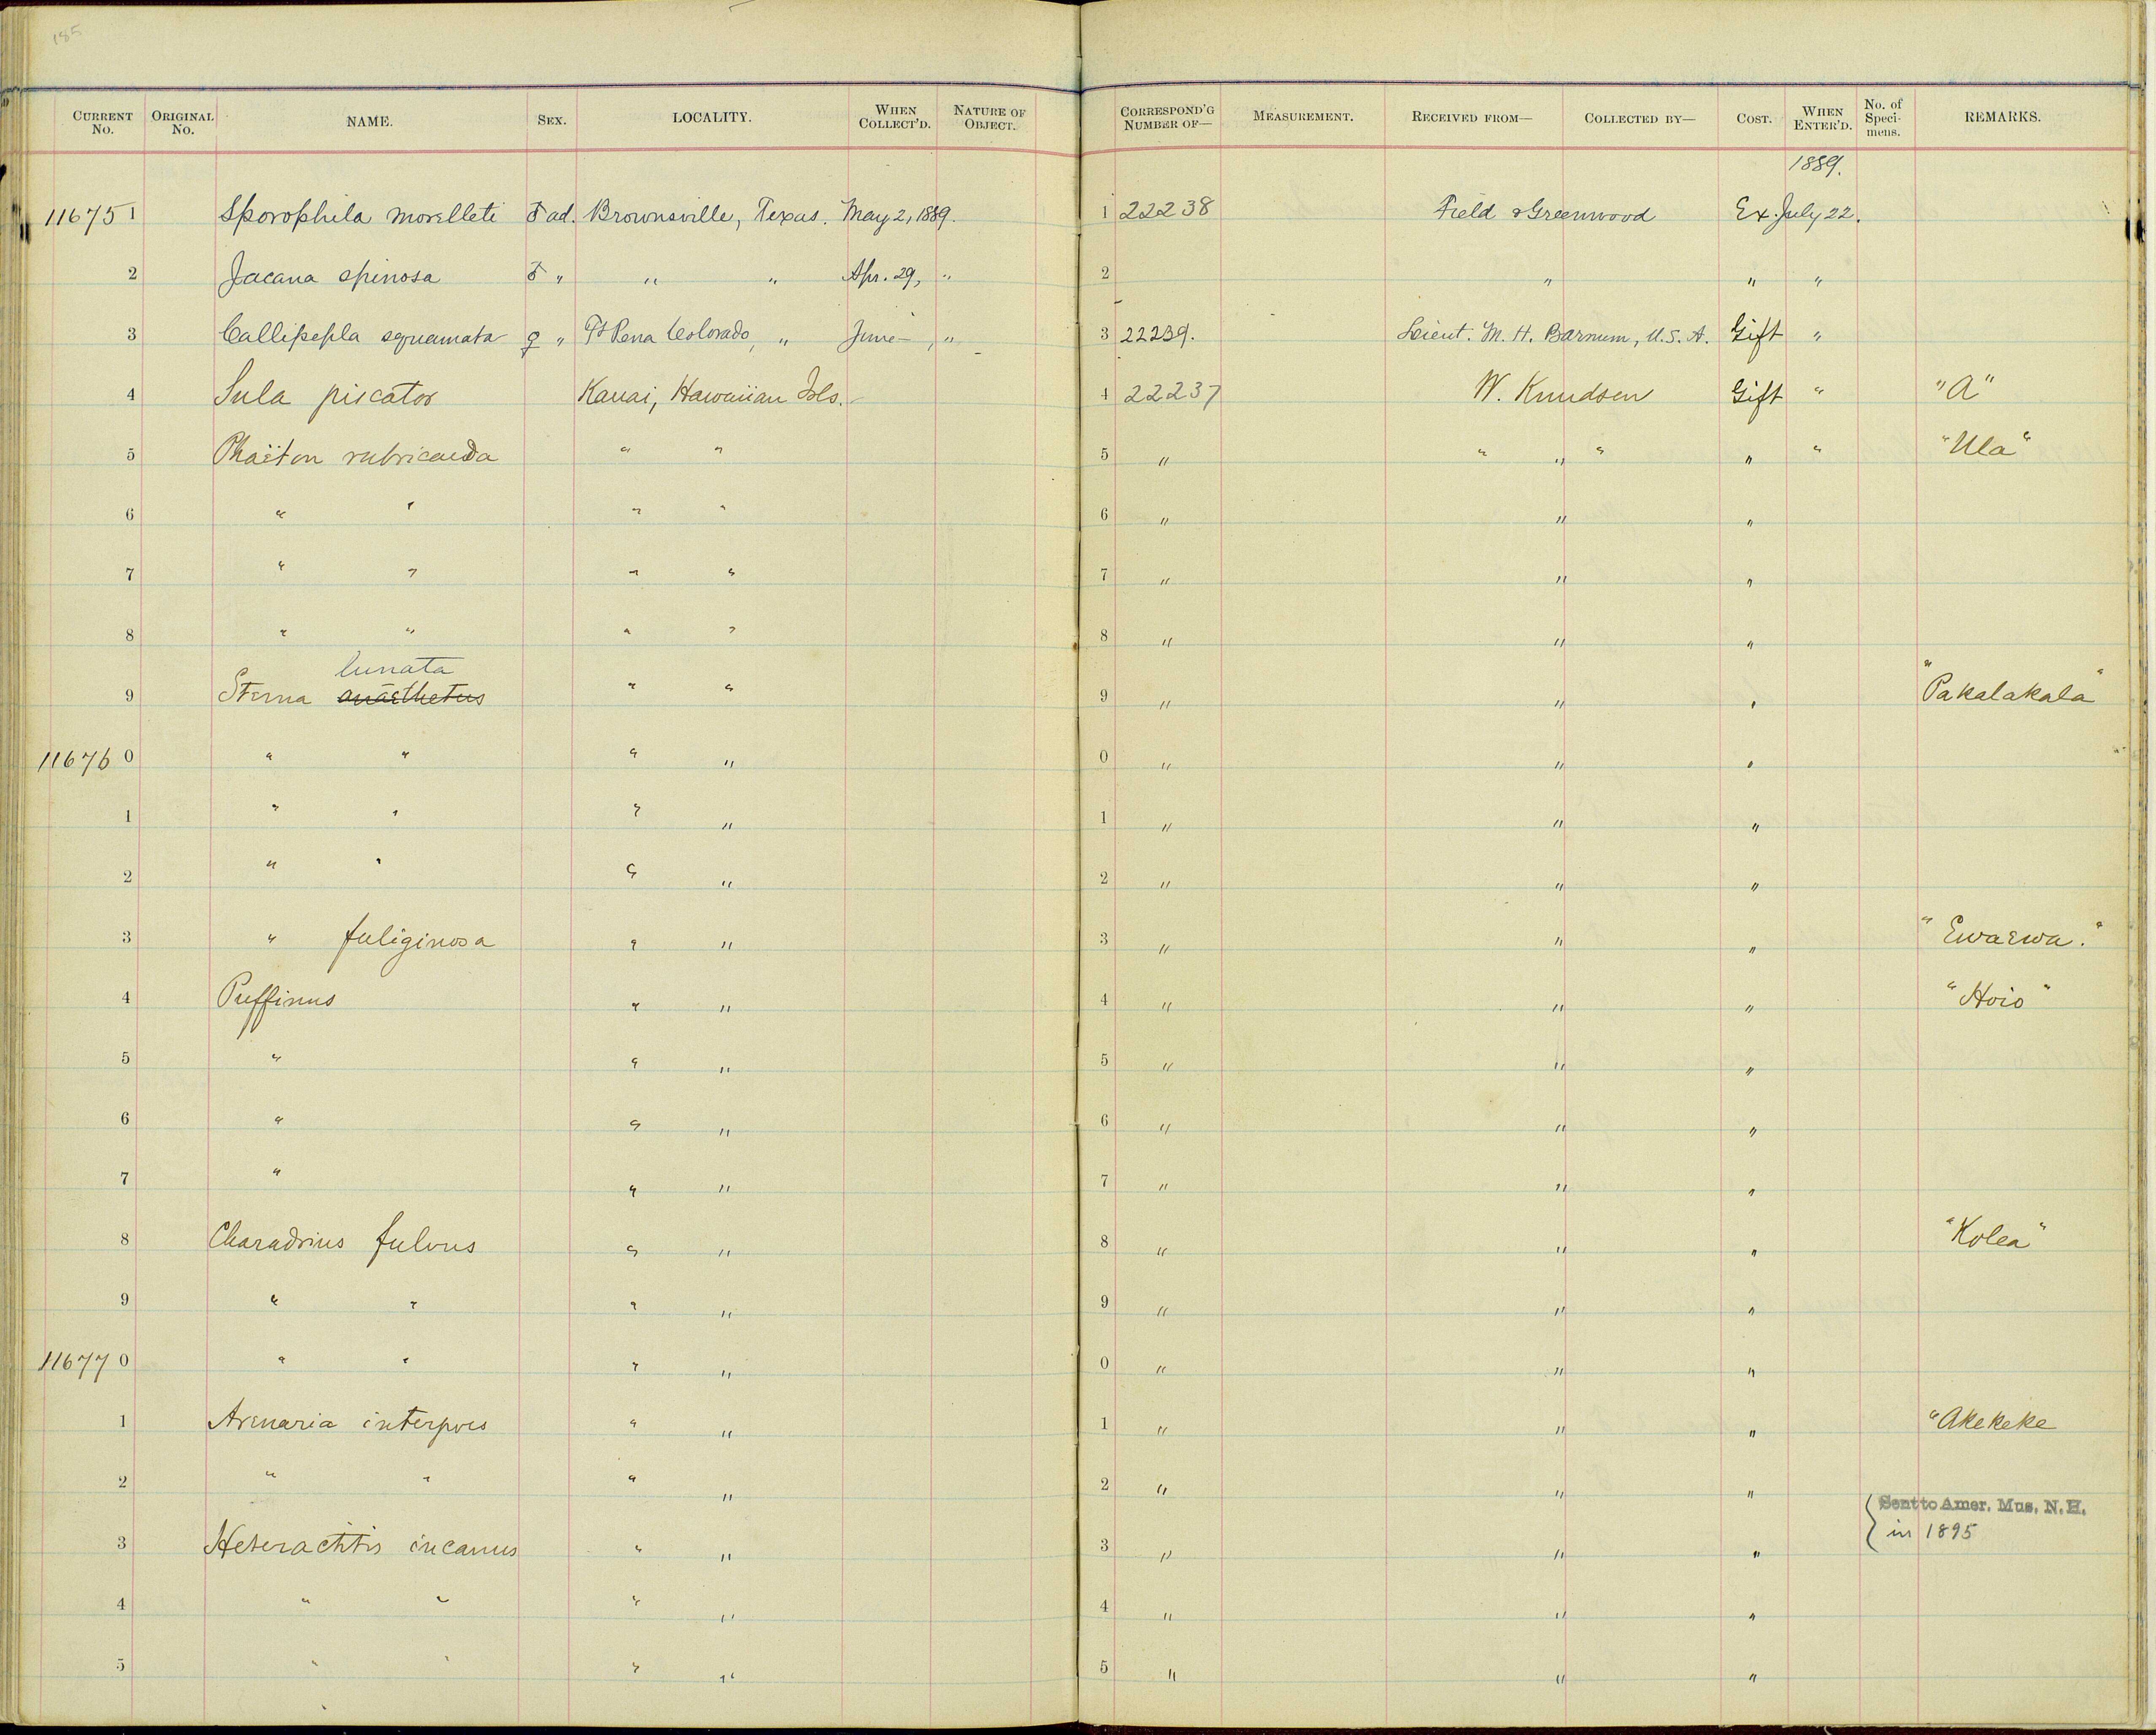 185
CURRENT No. ORIGINAL No. NAME. SEX. LOCALITY. WHEN COLLECT'D. NATURE OF OBJECT. CORRESPOND'G NUMBER OF— MEASUREMENT. RECEIVED FROM— COLLECTED BY— COST. WHEN ENTER'D. No. of Speci-mens. REMARKS.
1889.
116751 Sporophila morelleti ♂ ad. Brownsville, Texas. May 2, 1889. 1 22238 Field & Greenwood Ex. July 22.
2 Jacana spinosa ♂ " " " Apr. 29, " 2 " " "
3 Callipepla squamata ♀ " Ft Pena Colorado, " June —, " 3 22239. Lieut. M. H. Barnum, U.S.A. Gift "
4 Sula piscator Kauai, Hawaiian Isls. 4 22237 W. Knudsen Gift " "A"
5 Phaëton rubricauda " " 5 " " " " " " "Ula"
6 " " " " 6 " " "
7 " " " " 7 " " "
8 " " " " 8 " " "
lunata
9 Sterna anaethetus " " 9 " " " "Pakalakala"
116760 " " " " 0 " " "
1 " " " " 1 " " "
2 " " " " 2 " " "
3 " fuliginosa " " 3 " " " "Ewaewa."
4 Puffinus " " 4 " " " "Hoio"
5 " " " 5 " " "
6 " " " 6 " " "
7 " " " 7 " " "
8 Charadrius fulvus " " 8 " " " "Kolea"
9 " " " " 9 " " "
116770 " " " " 0 " " "
1 Arenaria interpres " " 1 " " " "Akekeke
2 " " " " 2 " " "
Sent to Amer. Mus. N. H.
in 1895
3 Heteractitis incanus " " 3 " " "
4 " " " " 4 " " "
5 " " " " 5 " " "